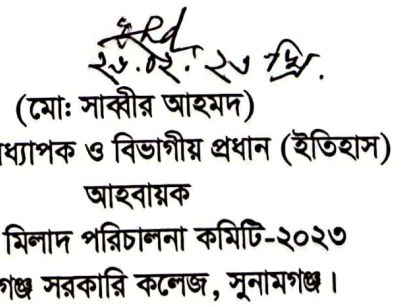 ২৬.০২.২৩ খ্রি.
(মো: সাব্বীর আহমদ)
ধ্যাপক ও বিভাগীয় প্রধান (ইতিহাস)
আহবায়ক
মিলাদ পরিচালনা কমিটি-২০২৩
গঞ্জ সরকারি কলেজ, সুনামগঞ্জ।